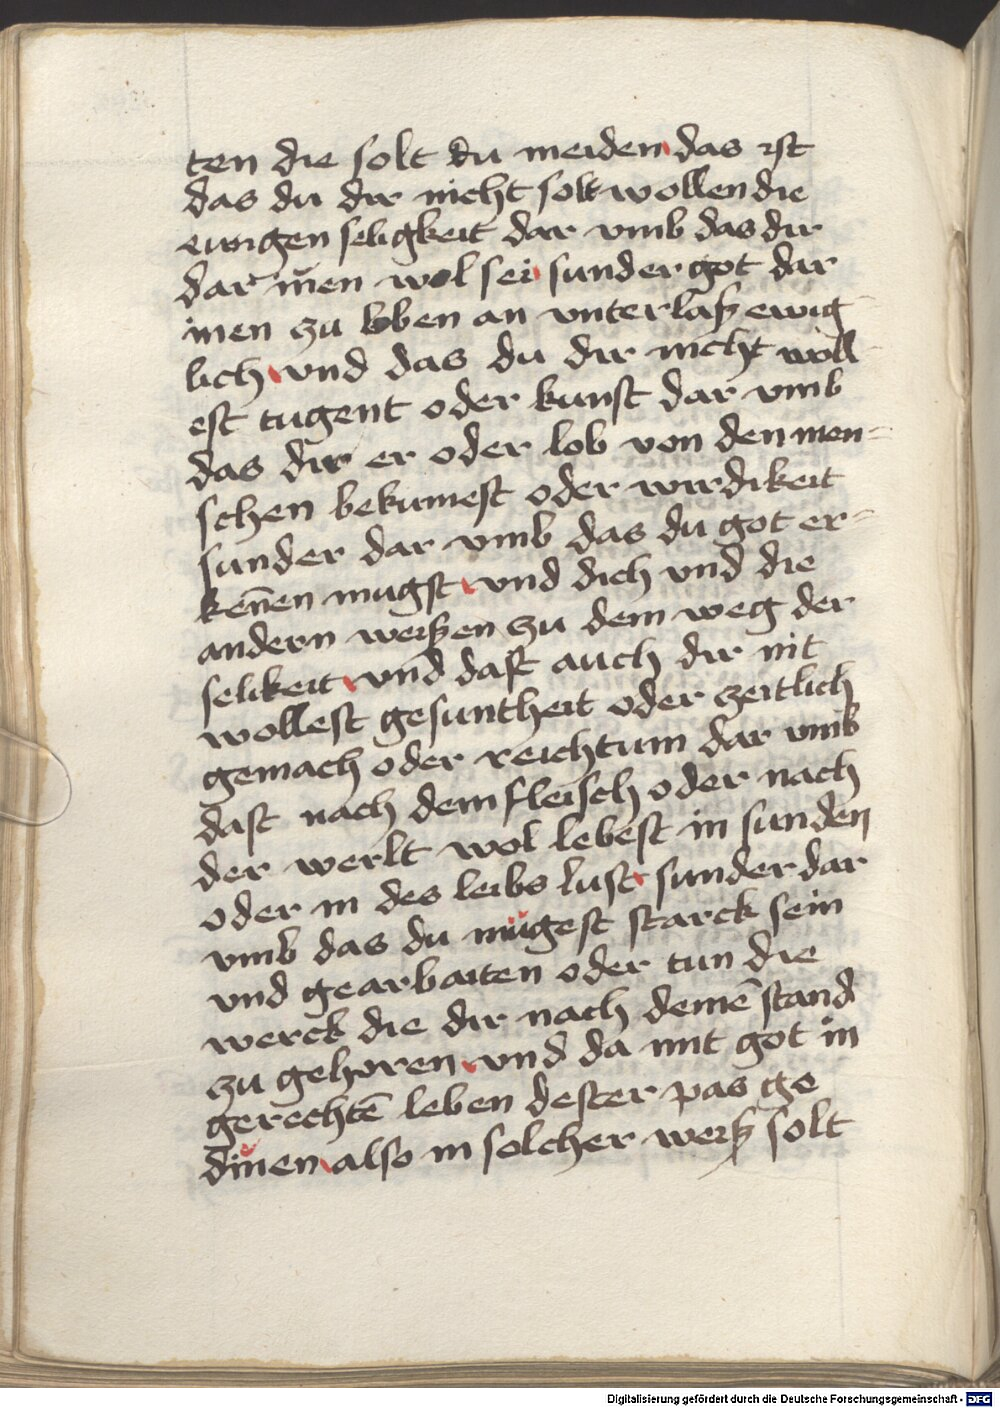 ten die solt du meiden das ist
das du dir nicht solt wollen die
ewigen seligkeit dar vmb das dir
dar iñen wol sei sunder got dar
inen zu loben an vnterlaß ewig
lich vnd das du dir nicht woll
est tugent oder kunst dar vmb
das dir er oder lob von den men=
schen bekumest oder wirdikeit
sunder dar vmb das du got er=
keñen mugst vnd dich vnd die
andern weißen zu dem weg der
selikeit vnd dast auch dir nit
wollest gesuntheit oder zeitlich
gemach oder reichtum dar vmb
dast nach dem fleisch oder nach
der werlt wol lebest in sunden
oder in des leibs lust sunder dar
vmb das du mügest starck sein
vnd gearbaiten oder tun die
werck die dir nach deinē stand
zu gehoren vnd da mit got in
gerechtē leben dester pas ge
dinen also in solcher weiß solt
Digitalisierung gefördert durch die Deutsche Forschungsgemeinschaft - DFG